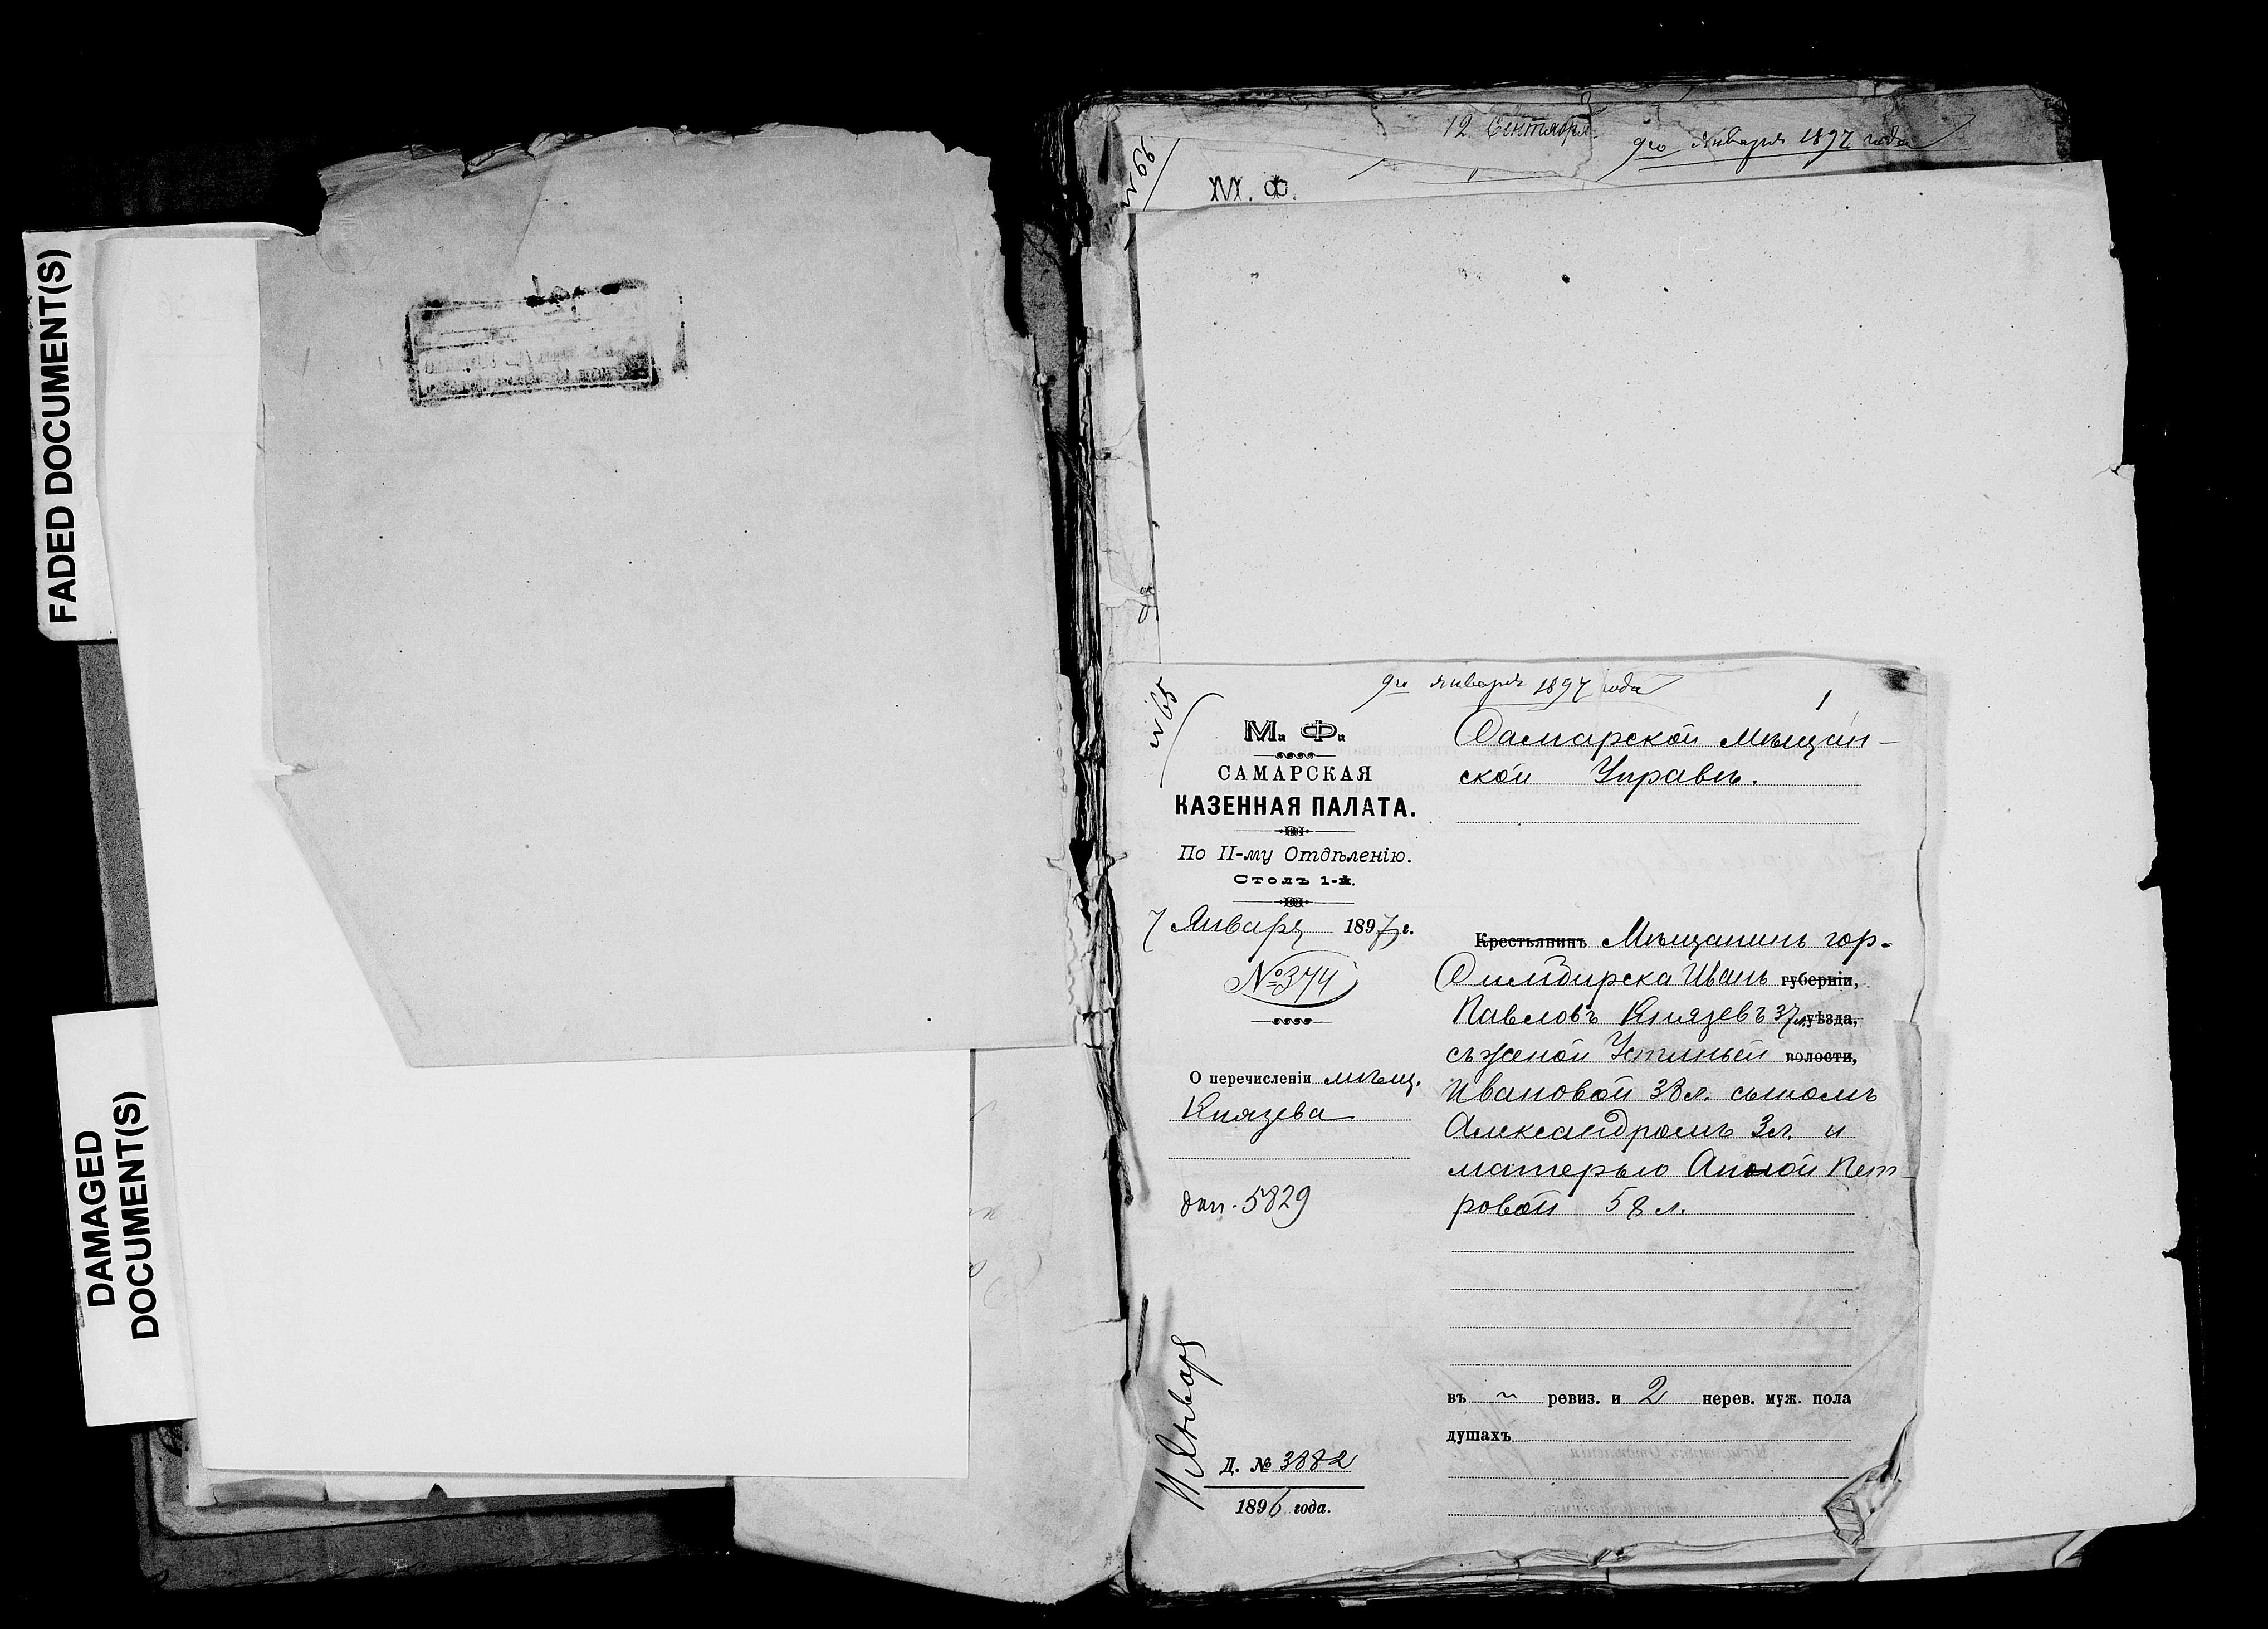 FADED DOCUMENT(S)
DAMAGED
DOCUMENT(S)
12 Сентября
9го Января 1897 года
№ 66
М. Ф.
9го января 1897 года
1
№ 65
М. Ф.
САМАРСКАЯ
КАЗЕННАЯ ПАЛАТА.
По II-му Отдѣленію.
Столъ 1-й.
7 Января 1897 г.
№ 374
О перечисленіи мѣщ.
Князева
доп. 5829
11 Января
Д. № 3882
1896 года.
Самарской Мѣщан-
ской Управѣ.
Крестьянинъ Мѣщанинъ гор.
Симбирска Иванъ губерніи,
Павловъ Князевъ 37 л. уѣзда,
съ женой Устиньей волости,
Ивановой 38 л. сыномъ
Александромъ 3 л. и
матерью Анной Пет-
ровой 58 л.
въ ~ ревиз. и 2 нерев. муж. пола
душахъ